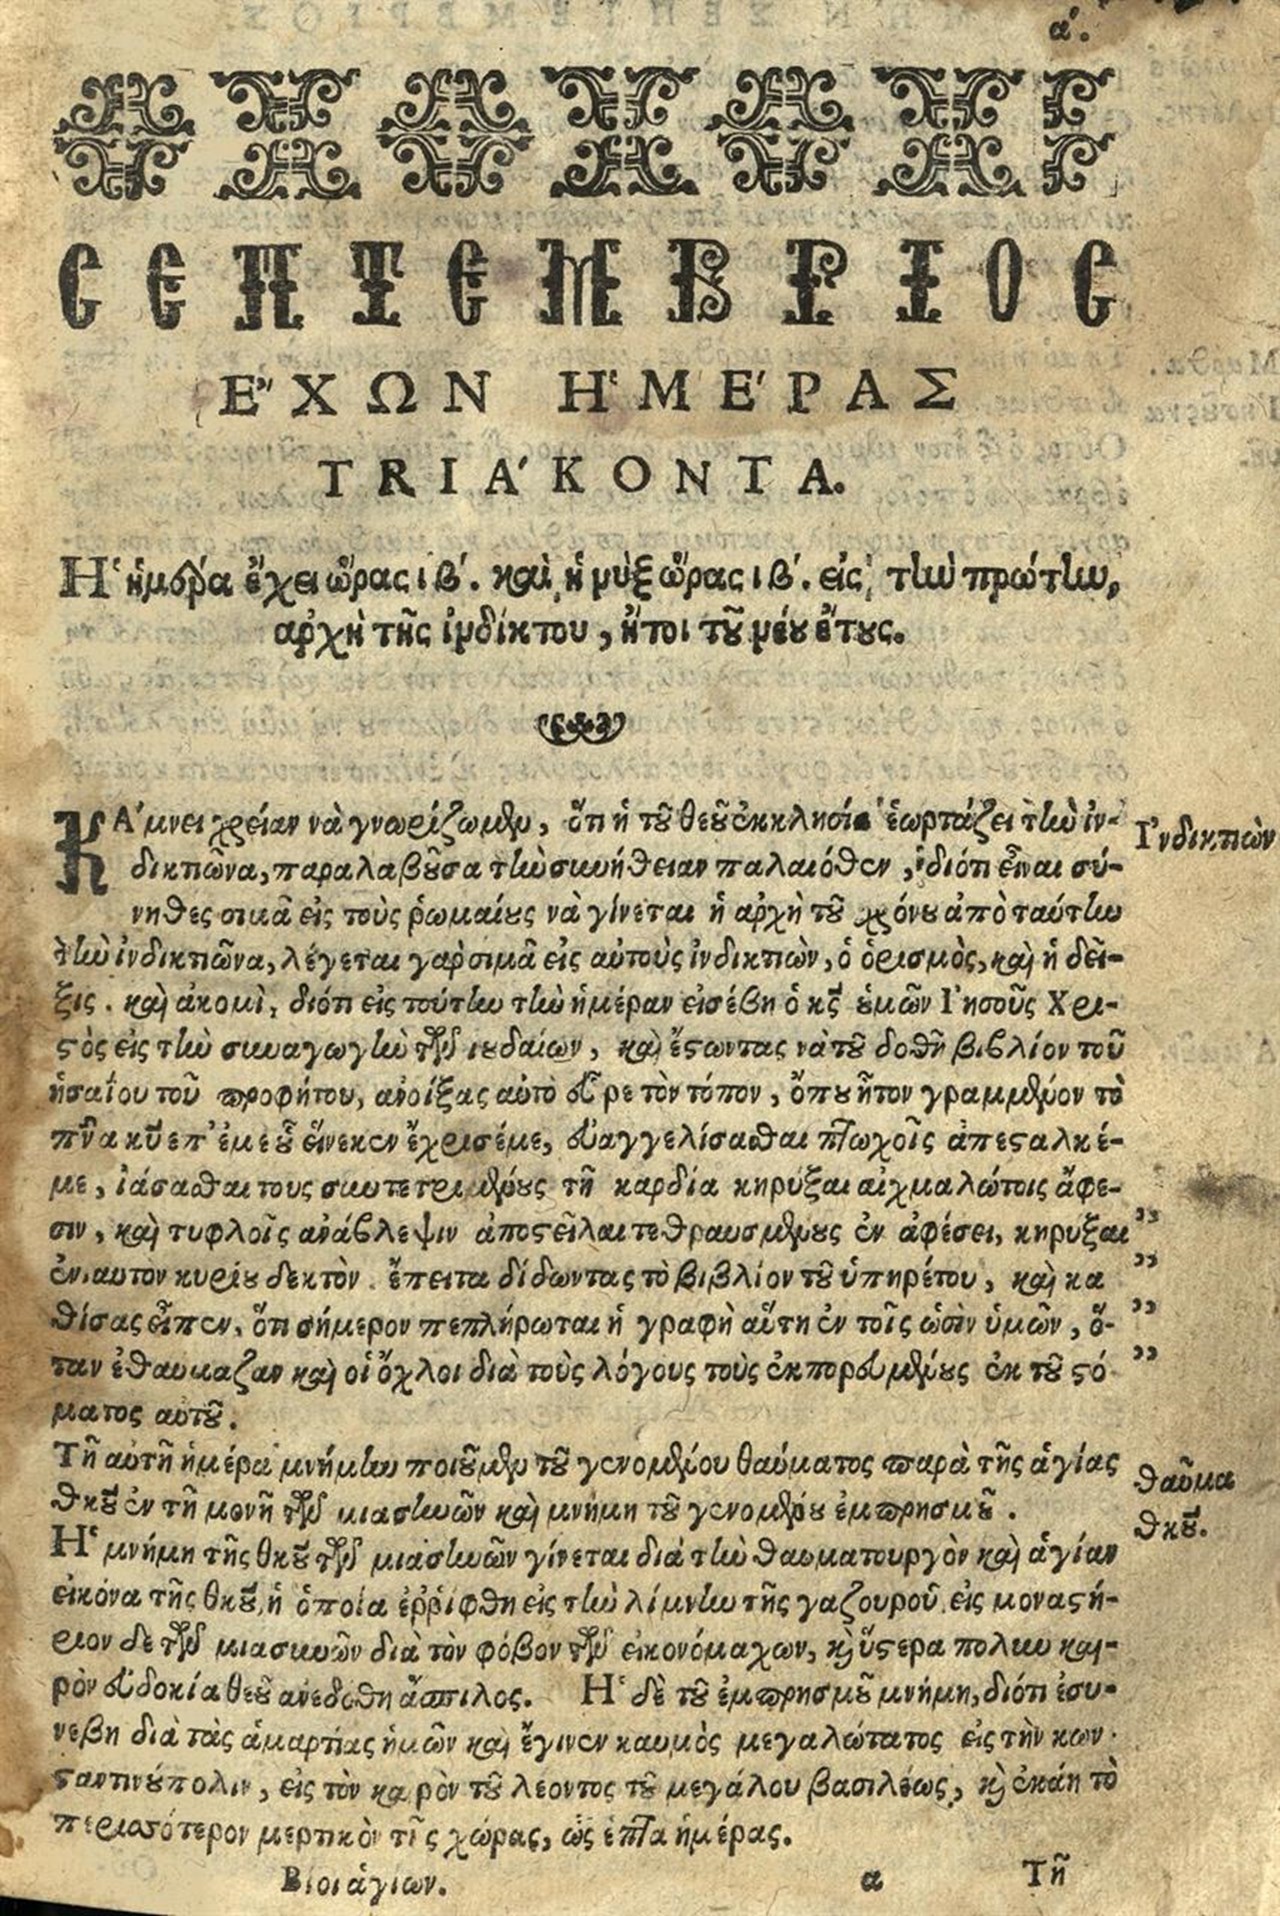 α΄.
ϹΕΠΤΕΜΒΡΙΟϹ
ἜΧΩΝ ἩΜΕΡΑΣ
ΤΡΙΆΚΟΝΤΑ.
Ἡ ἡμέρα ἔχει ὥρας ιβ΄. καὶ ἡ νὺξ ὥρας ιβ΄. εἰς τὴν πρώτην,
ἀρχὴ τῆς ἰνδίκτου, ἤτοι τοῦ νέου ἔτους.
ΚΆμνει χρείαν νὰ γνωρίζωμεν, ὅτι ἡ τοῦ θεοῦ ἐκκλησία ἑωρτάζει τὴν ἰν-
Ἰνδικτιὼν
δικτιῶνα, παραλαβοῦσα τὴν συνήθειαν παλαιόθεν, διότι εἶναι σύ-
νηθες σιμᾶ εἰς τοὺς ῥωμαίους νὰ γίνεται ἡ ἀρχὴ τοῦ χρόνου ἀπὸ ταύτην
τὴν ἰνδικτιῶνα, λέγεται γὰρ σιμᾶ εἰς αὐτοὺς ἰνδικτιὼν, ὁ ὁρισμὸς, καὶ ἡ δεῖ-
ξις. καὶ ἀκομὶ, διότι εἰς τούτην τὴν ἡμέραν εἰσέβη ὁ κς ὑμῶν Ἰησοῦς Χρι-
στὸς εἰς τὴν συναγωγὴν τῶν ιουδαίων, καὶ ἔσωντας νὰ τοῦ δοθῆ βιβλίον τοῦ
ἡσαΐου τοῦ προφήτου, ἀνοίξας αὐτὸ εὗρε τὸν τόπον, ὅπου ἦτον γραμμένον τὸ
πνα κυ επ' ἐμὲ οὗ εἵνεκεν ἔχρισέ με, εὐαγγελίσασθαι πτωχοῖς ἀπέσταλκέ-
με, ἰάσασθαι τους συντετριμμένους τῆ καρδία κηρύξαι αἰχμαλώτοις ἄφε-
σιν, καὶ τυφλοῖς ἀνάβλεψιν ἀποστεῖλαι τεθραυσμένους ἐν ἀφέσει, κηρύξαι ,,
ἐνιαυτον κυρίου δεκτὸν. ἔπειτα δίδωντας τὸ βιβλίον τοῦ ὑπηρέτου, καὶ κα ,,
θίσας εἶπεν, ὅτι σήμερον πεπλήρωται ἡ γραφὴ αὕτη ἐν τοῖς ὡσὶν ὑμῶν, ὅ- ,,
ταν ἐθαυμαζαν καὶ οἱ ὄχλοι διὰ τοὺς λόγους τοὺς ἐκπορευμένους ἐκ τοῦ στό ,,
ματος αὐτοῦ.
Τῆ αὐτῆ ἡμέρα μνήμην ποιοῦμεν τοῦ γενομένου θαύματος παρὰ τῆς ἁγίας
θαῦμα
θκου ἐν τῆ μονῆ τῶν μιασηνῶν καὶ μνήμη τοῦ γενομένου ἐμπρησμοῦ.
θκου.
Ἡ μνήμη τῆς θκου τῶν μιασηνῶν γίνεται διὰ τὴν θαυματουργὸν καὶ ἁγίαν
εἰκόνα τῆς θκου, ἡ ὁποία ἐῤῥίφθη εἰς τὴν λίμνην τῆς γαζουροῦ, εἰς μοναστή-
ριον δὲ τῶν μιασηνῶν διὰ τὸν φόβον τῶν εἰκονόμαχων, καὶ ὕστερα πολὺν και-
ρὸν εὐδοκία θεοῦ ἀνεδόθη ἄσπιλος. Ἡ δὲ τοῦ ἐμπρησμοῦ μνήμη, διότι ἐσυ-
νεβη διὰ τὰς ἁμαρτίας ἡμῶν καὶ ἔγινεν καυμὸς μεγαλώτατος εἰς τὴν κων-
σταντινούπολιν, εἰς τὸν καιρὸν τοῦ λέοντος τοῦ μεγάλου βασιλέως, καὶ ἐκάη τὸ
περισσότερον μερτικὸν τῆς χώρας, ὡς ἑπτα ἡμέρας.
Βίοι ἁγίων. α Τῆ